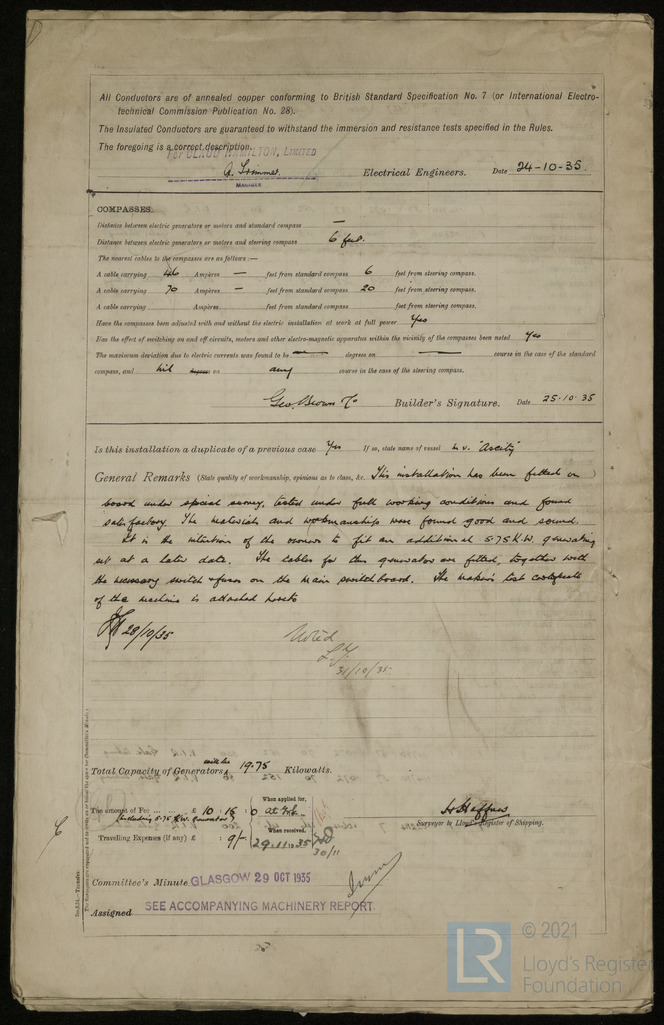 All Conductors are of annealed copper conforming to British Standard Specification No. 7 (or International Electro-
technical Commission Publication No. 28).
The Insulated Conductors are guaranteed to withstand the immersion and resistance tests specified in the Rules.
The foregoing is a correct description.
For CLAUD HAMILTON, LIMITED
Electrical Engineers. Date 24-10-35.
MANAGER
COMPASSES.
Distance between electric generators or motors and standard compass —
Distance between electric generators or motors and steering compass 6 feet.
The nearest cables to the compasses are as follows:—
A cable carrying 46 Ampères — feet from standard compass 6 feet from steering compass.
A cable carrying 70 Ampères — feet from standard compass 20 feet from steering compass.
A cable carrying Ampères feet from standard compass feet from steering compass.
Have the compasses been adjusted with and without the electric installation at work at full power Yes
Has the effect of switching on and off circuits, motors and other electro-magnetic apparatus within the vicinity of the compasses been noted Yes
The maximum deviation due to electric currents was found to be — degrees on — course in the case of the standard
compass, and nil degrees on any course in the case of the steering compass.
Geo. Brown & Co Builder's Signature. Date 25.10.35
Is this installation a duplicate of a previous case Yes If so, state name of vessel m.v. "Arcity"
General Remarks (State quality of workmanship, opinions as to class, &c. This installation has been fitted on
board under special survey, tested under full working conditions and found
satisfactory. The materials and workmanship were found good and sound.
It is the intention of the owners to fit an additional 5.75 K.W. generating
set at a later date. The cables for this generator are fitted, together with
the necessary switch & fuses on the main switchboard. The makers test certificate
of the machine is attached hereto
28/10/35
Noted
31/10/35
Total Capacity of Generators 19.75 Kilowatts.
The amount of Fee ... ... £ 10 : 15 : 0
(Including 5.75 K.W. Generator)
When applied for,
Travelling Expenses (if any) £ : 9/-
When received,
29.11.1935
30/11
Surveyor to Lloyd's Register of Shipping.
Committee's Minute GLASGOW 29 OCT 1935
Assigned SEE ACCOMPANYING MACHINERY REPORT.
© 2021
Lloyd's Register
Foundation
LR